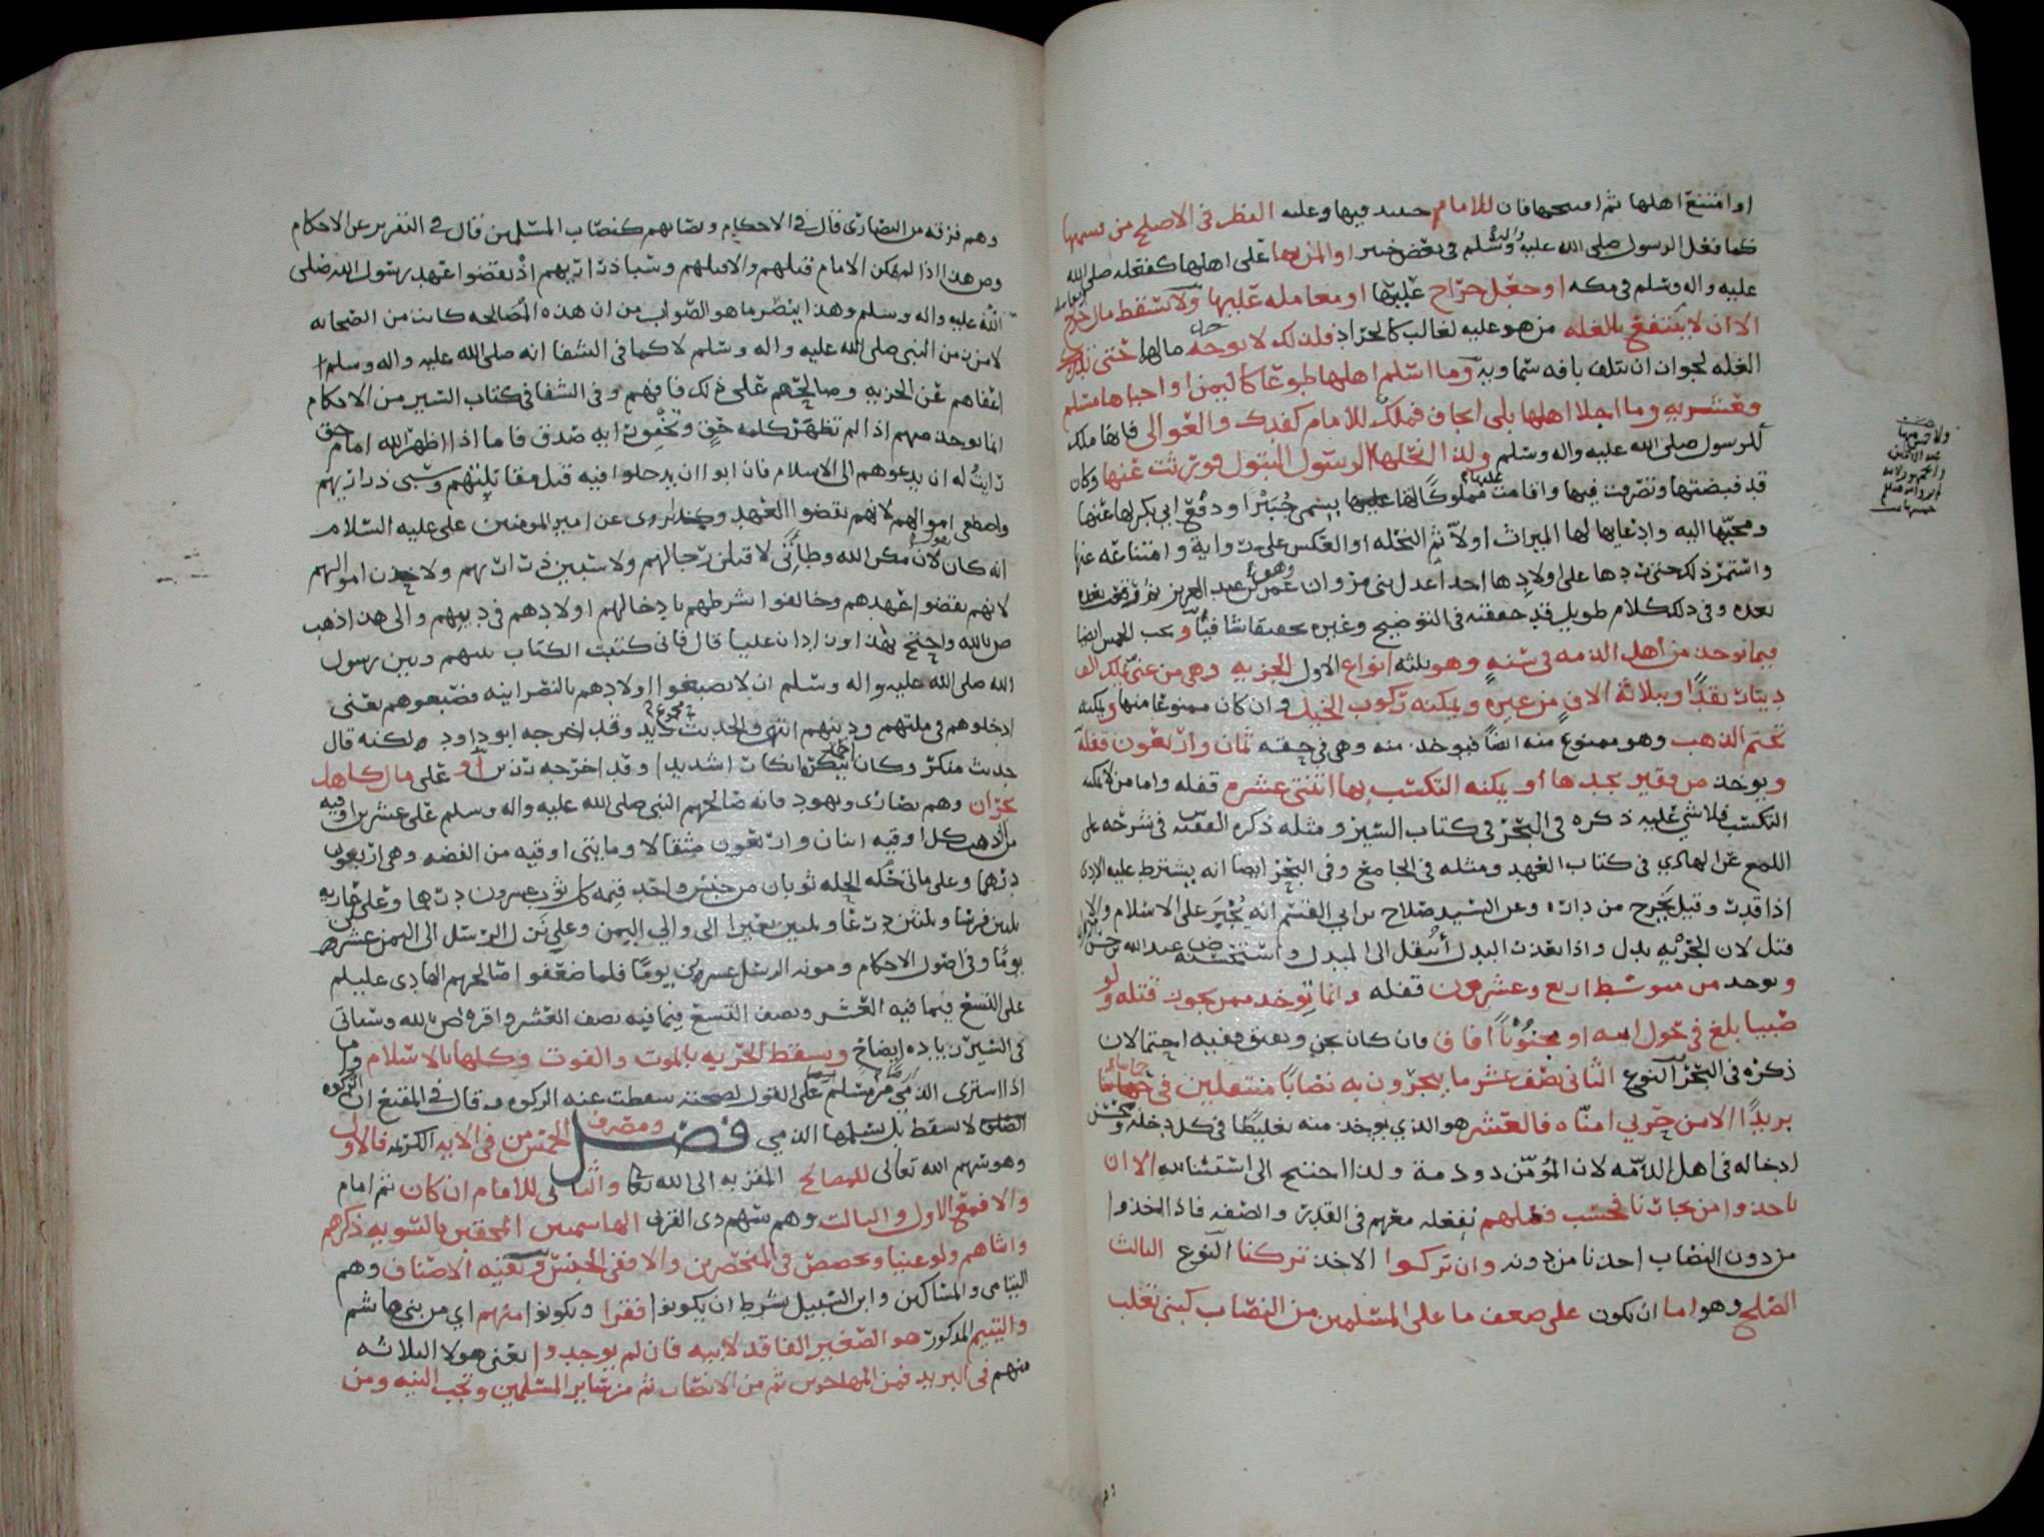 او امتنع اهلها ثم افتتحها فان للامام حينئذ فيها وعليه النظر في الاصلح من قسمتها
كما فعل الرسول صلى الله عليه واله وسلم في بعض خيبر او المن بها على اهلها كفعله صلى الله
عليه واله وسلم في مكه او جعل خراج عليها او معامله عليها ولا تسقط مال خرج
الا ان لا ينتفع بالغله من هو عليه لغالب كالجراد فلذلك لا يوخذ خراج مالها حتى تدرك
الغله لجواز ان تتلف بافه سماويه وما اسلم اهلها طوعا كاليمن او احياها مسلم
فعشريه وما اجلا اهلها بلى ايجاف فملك للامام كفدك والعوالي فانها ملك
للرسول صلى الله عليه واله وسلم ولذا انحلها الرسول البتول وورثت عنها وكان
قد قبضتها وتصرفت فيها واقامت مملوكا لها عليها يسمى جبيرا ودفع ابي بكر لها عنها
ومجيها اليه وادعايها لها الميراث اولا ثم النحله او العكس على رواية وامتناعه عنها
واستمر ذلك حتى ردها على اولادها احد اعدل بني مروان وهو عمر بن عبد العزيز ثم
بعده وفي ذلك كلام طويل قد حققته في التوضيح وغيره تحقيقا شافيا و يجب الخمس ايضا
فيما يوخذ من اهل الذمه في سنه وهو ثلثه انواع الاول الجزيه وهي من غني يملك الف
دينار نقدا وبثلاثة الاف من غيره ويمكنه ركوب الخيل وان كان ممنوعا منها ويمكنه
تختم الذهب وهو ممنوع منه ايضا فيوخذ منه وهي في حقه ثمان واربعون قفله
ويوخذ من فقير يجدها او يمكنه التكسب بها اثنتي عشره قفله واما من لا يمكنه
التكسب فلا شي عليه ذكره في البحر في كتاب السير ومثله ذكره الفقيه ف في شرحه على
اللمع عن الهادي في كتاب العهد ومثله في الجامع وفي البحر ايضا انه يشترط عليه الاداء
اذا قدر وقيل يخرج من داره وعن السيد صلاح بن ابي القسم انه يجبر على الاسلام والا
قتل لان الجزيه بدل واذا تعذر البدل انتقل الى المبدل واستحسنه ض عبد الله بن حسن
ويوخذ من متوسط اربع وعشرون قفله وانما توخذ ممن يجوز قتله ولو
صبيا بلغ في حول اسه او مجنونا افاق فان كان يجن ويفيق ففيه احتمالان
ذكره في البحر النوع الثاني نصف عشر ما يتجرون به نصابا منتقلين في
بريدا الا من حربي امناه فالعشر هو الذي يوخذ منه تغليظا في كل دخله
ادخاله في اهل الذمه لان المؤمن ذو ذمة ولذا احتيج الى استثنايه الا ان
ياخذوا من تجارنا فحسب فعلهم نفعله معهم في القدر والصفه فاذا اخذوا
من دون النصاب اخذنا من دونه وان تركوا الاخذ تركنا النوع الثالث
الصلح وهو اما ان يكون على ضعف ما على المسلمين من النصاب كبني تغلب
وهم فرقه من النصارى قال في الاحكام ونصابهم كنصاب المسلمين قال في التقرير عن الاحكام
وص هذا اذا لم يمكن الامام قتلهم والا قتلهم وسبا ذراريهم اذ نقضوا عهد رسول الله صلى
الله عليه واله وسلم وهذا ينصر ما هو الصواب من ان هذه المصالحه كانت من الصحابه
لا من من النبي صلى الله عليه واله وسلم لا كما في الشفا انه صلى الله عليه واله وسلم
اعفاهم عن الجزيه وصالحهم على ذلك فافهم وفي الشفا في كتاب السير من الاحكام
انما يوخذ منهم اذا لم تظهر كلمه حق ويخفون ابه صدق فاما اذا اظهر الله امام حق
رايت له ان يدعوهم الى الاسلام فان ابوا ان يدخلوا فيه قتل مقاتلتهم وسبى ذراريهم
واصطفى اموالهم لانهم نقضوا العهد وكذا روي عن امير المومنين علي عليه السلام
انه كان يقول لان مكن الله وطأتي لاقتلن رجالهم ولاسبين ذراريهم ولاخذن اموالهم
لانهم نقضوا عهدهم وخالفوا بشرطهم بادخالهم اولادهم في دينهم والى هذا ذهب
ص بالله واحتج بهذا وزاد ان عليا قال فاني كتبت الكتاب بينهم وبين رسول
الله صلى الله عليه واله وسلم ان لا يصبغوا اولادهم بالنصرانيه فصبغوهم يعني
ادخلوهم في ملتهم ودينهم انتهى والحديث وقد اخرجه ابو داود ولكنه قال
حديث منكر وكان احمد ينكره انكارا شديدا وقد اخرجه رزين او على مال كاهل
نجران وهم نصارى ويهود فانه صالحهم النبي صلى الله عليه واله وسلم على عشرين اوقيه
من الذهب كل اوقيه اثنان واربعون مثقالا ومايتي اوقيه من الفضه وهي اربعون
درهما وعلى مائتي حله الحله ثوبان من جنس واحد قيمه كل ثوب عشرون درهما وعلى عاريه
ثلثين فرسا وثلثين درعا وثلثين بعيرا الى والي اليمن وعلى نزل الرسل الى اليمن عشرين
يوما وفي اصول الاحكام ومونه الرسل عشرين يوما فلما ضعفوا صالحهم الهادي عليلم
على التسع فيما فيه العشر ونصف التسع فيما فيه نصف العشر واقره ص بالله وسياتي
في السير زياده ايضاح وتسقط الجزيه بالموت والفوت وكلها بالاسلام وما
اذا اشترى الذمي من مسلم ارضا على القول بصحته سقطت عنه الزكوه وقال في المقنع ان الزكوه
لا تسقط بل يسلمها الذمي فصل ومصرف الخمس من في الايه الكريمه فالاول
وهو سهم الله تعالى للمصالح المقربه الى الله تعا والثاني للامام ان كان ثم امام
والا فمع الاول والثالث وهم سهم ذي القربى الهاشميين المحقين بالسويه ذكرهم
وانثاهم ولو غنيا ويحصص في المنحصرين والا ففي الجنس وبقيه الاصناف وهم
اليتامى والمساكين وابن السبيل بشرط ان يكونوا فقرا ويكونوا منهم اي من بني هاشم
واليتيم المذكور هو الصغير الفاقد لابيه فان لم يوجدوا يعني هولا الثلاثه
منهم في البريد فمن المهاجرين ثم من الانصار ثم من ساير المسلمين وتجب النيه ومن